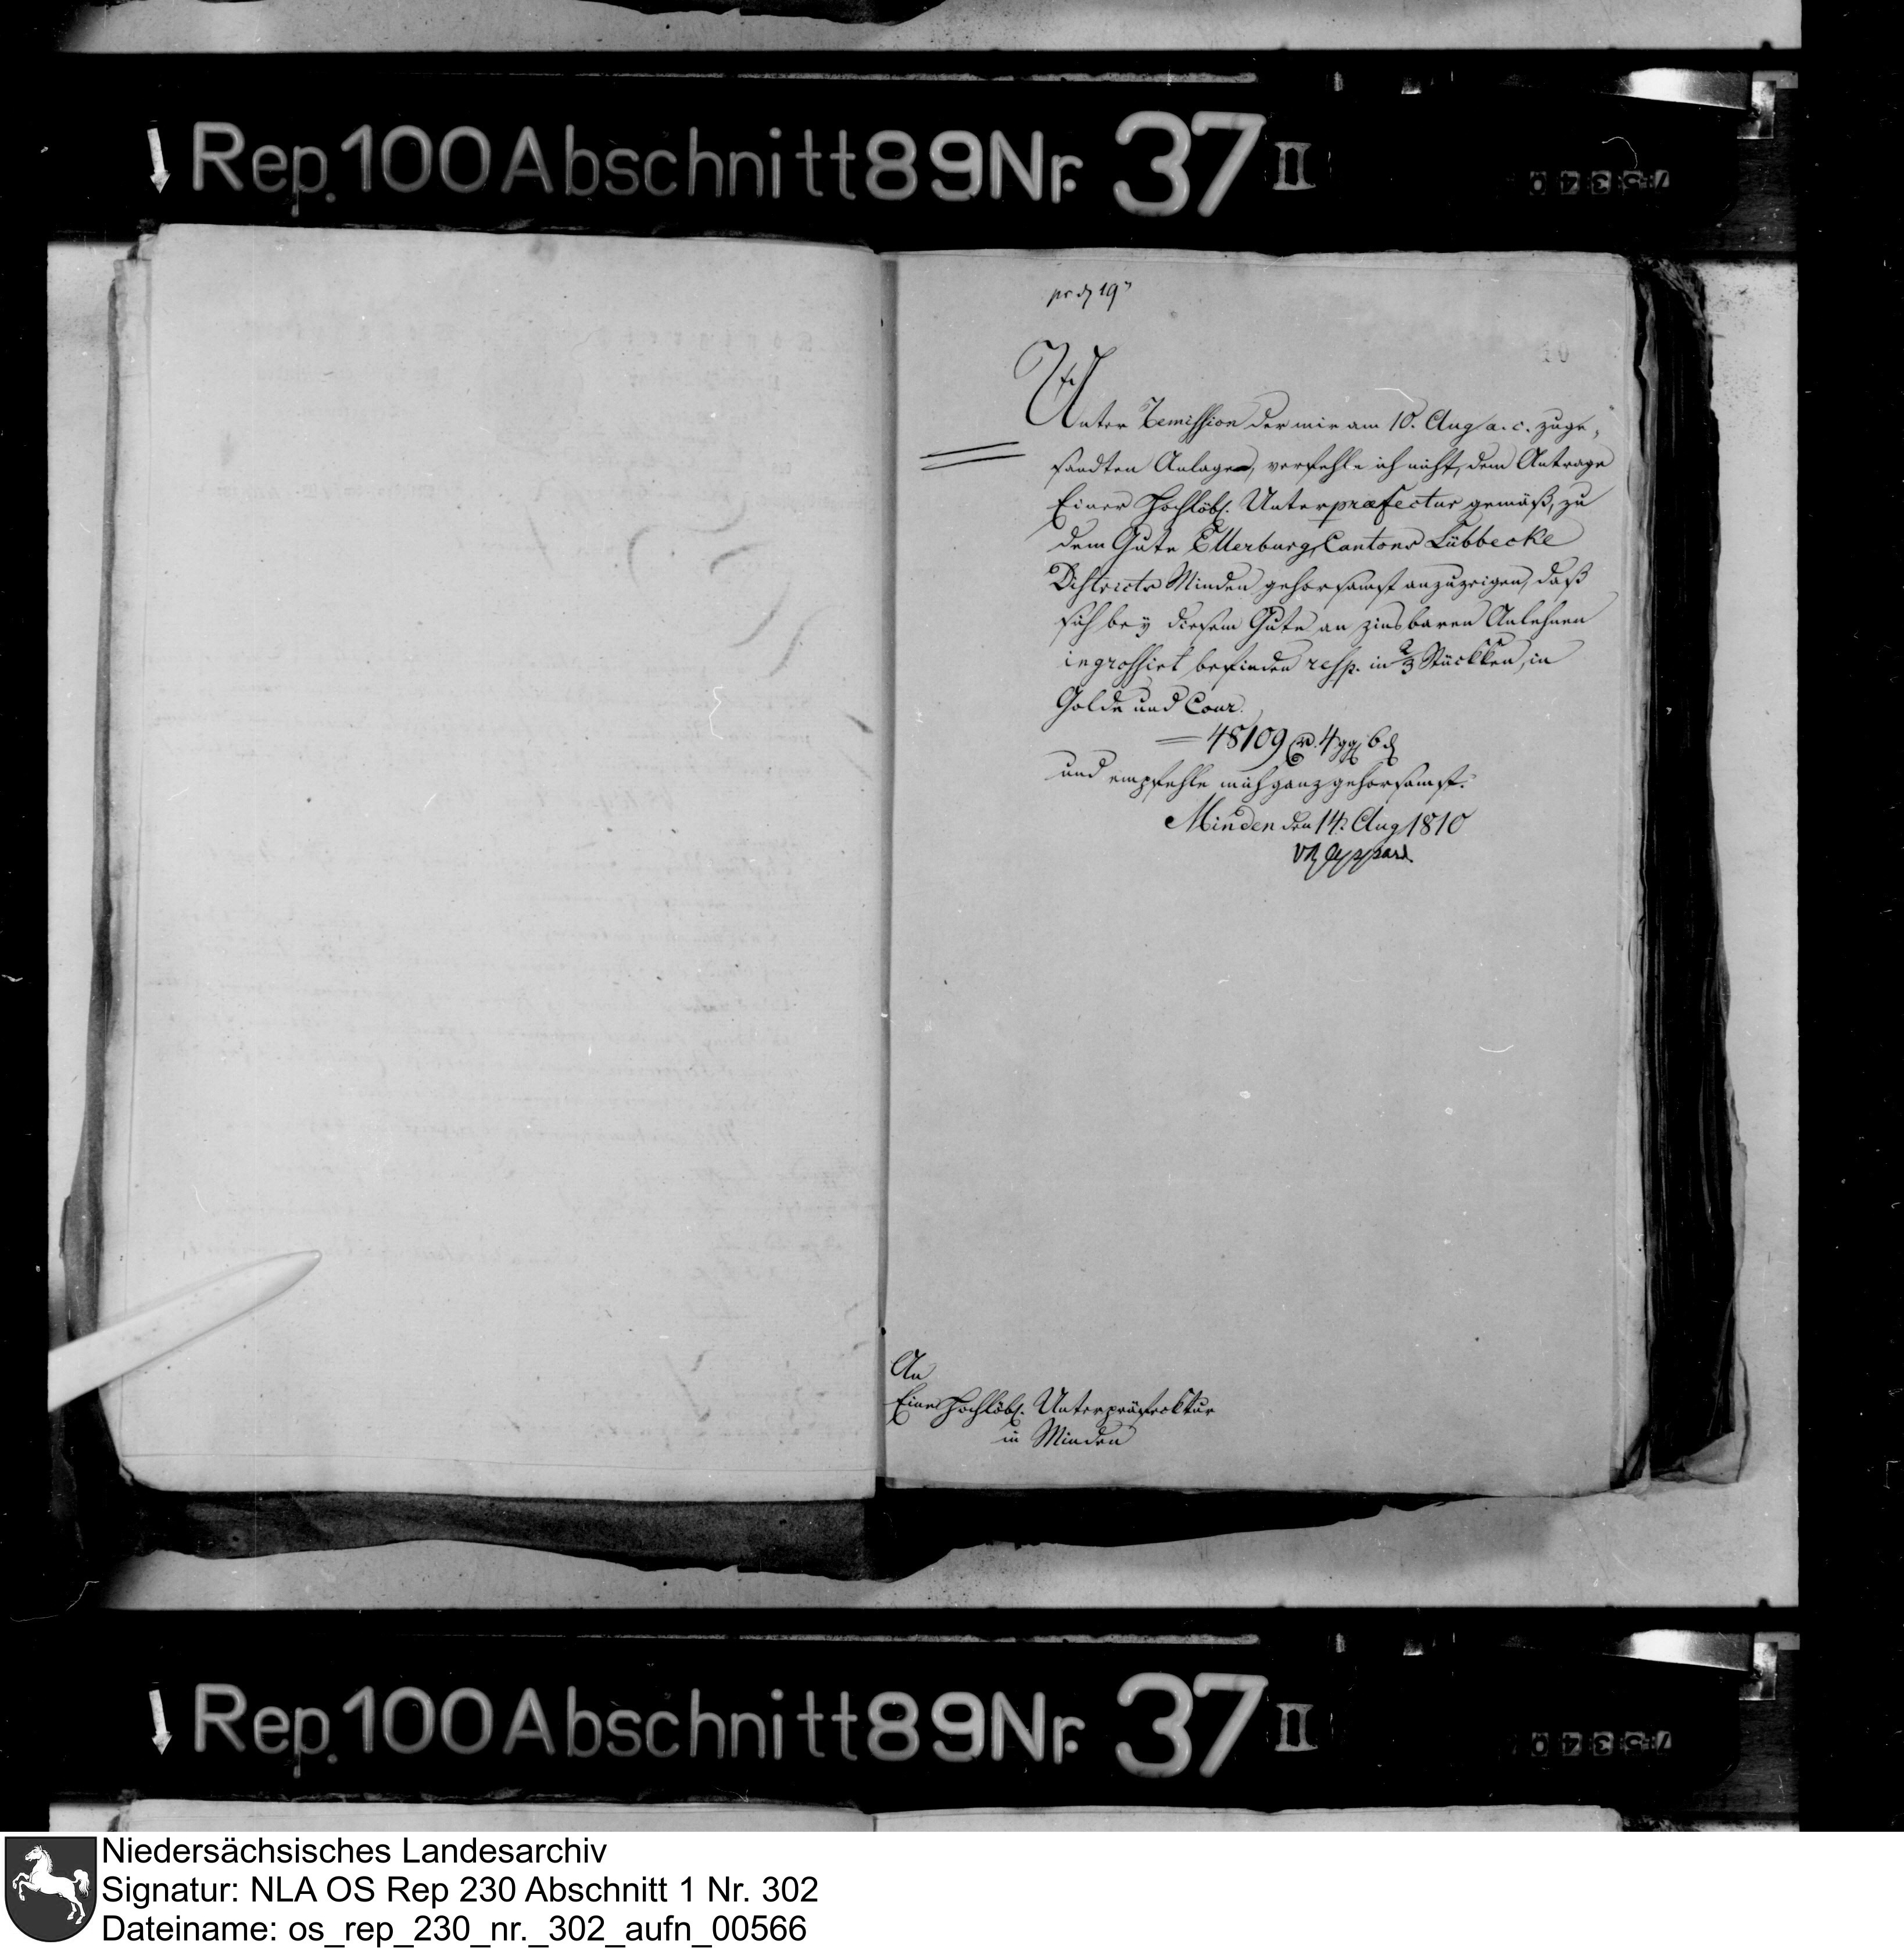 Rep. 100 Abschnitt 89 Nr. 37 II
pr. d 19
20
Unter Remission der mir am 10. Aug a. c. zuge,
sandten Anlagen, verfehle ich nicht, dem Antrage
Einer Hochlöbl. Unterpræfectur gemäß, zu
dem Gute Ellerburg, Cantons Lübbecke
Districts Minden gehorsamst anzuzeigen, daß
sich bey diesem Gute an zinsbaren Anlehnen
ingrossirt befinden resp. in 2/3 Stücken, in
Golde und Cour.
48109 4 gg 6 d
und empfehle mich ganz gehorsamst.
Minden den 14. Aug 1810
An
Eine Hochlöbl. Unterpräfecktur
in Minden
Rep. 100 Abschnitt 89 Nr. 37 II
Niedersächsisches Landesarchiv
Signatur: NLA OS Rep 230 Abschnitt 1 Nr. 302
Dateiname: os_rep_230_nr._302_aufn_00566